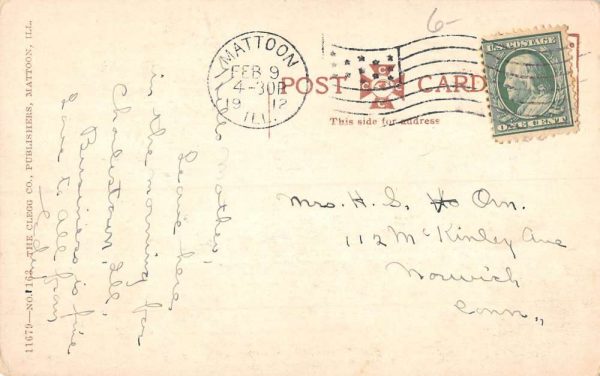 6-
MATTOON
FEB 9
4-30P
1912
ILL.
U.S. POSTAGE
ONE CENT
POST CARD
This side for address
11679—NO. 163. THE CLEGG CO., PUBLISHERS, MATTOON, ILL.
Hello Mother,
Leave here
in the morning for
Charlestown, Ill.
Business is fine
Love to all from
Mrs. H. S. Orn.
112 McKinley Ave
Norwich
Conn.,